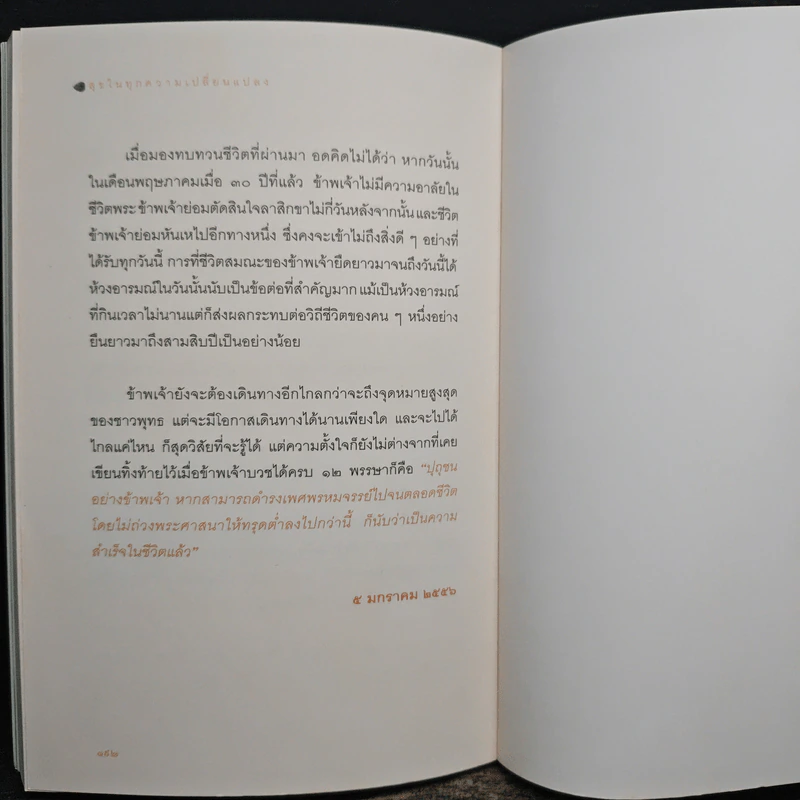 สุขในทุกความเปลี่ยนแปลง
เมื่อมองทบทวนชีวิตที่ผ่านมา อดคิดไม่ได้ว่า หากวันนั้น
ในเดือนพฤษภาคมเมื่อ ๓๐ ปีที่แล้ว ข้าพเจ้าไม่มีความอาลัยใน
ชีวิตพระ ข้าพเจ้าย่อมตัดสินใจลาสิกขาไม่กี่วันหลังจากนั้น และชีวิต
ข้าพเจ้าย่อมหันเหไปอีกทางหนึ่ง ซึ่งคงจะเข้าไม่ถึงสิ่งดี ๆ อย่างที่
ได้รับทุกวันนี้ การที่ชีวิตสมณะของข้าพเจ้ายืดยาวมาจนถึงวันนี้ได้
ห้วงอารมณ์ในวันนั้นนับเป็นข้อต่อที่สำคัญมาก แม้เป็นห้วงอารมณ์
ที่กินเวลาไม่นานแต่ก็ส่งผลกระทบต่อวิถีชีวิตของคน ๆ หนึ่งอย่าง
ยืนยาวมาถึงสามสิบปีเป็นอย่างน้อย
ข้าพเจ้ายังจะต้องเดินทางอีกไกลกว่าจะถึงจุดหมายสูงสุด
ของชาวพุทธ แต่จะมีโอกาสเดินทางได้นานเพียงใด และจะไปได้
ไกลแค่ไหน ก็สุดวิสัยที่จะรู้ได้ แต่ความตั้งใจก็ยังไม่ต่างจากที่เคย
เขียนทิ้งท้ายไว้เมื่อข้าพเจ้าบวชได้ครบ ๑๒ พรรษาก็คือ “ปุถุชน
อย่างข้าพเจ้า หากสามารถดำรงเพศพรหมจรรย์ไปจนตลอดชีวิต
โดยไม่ถ่วงพระศาสนาให้ทรุดต่ำลงไปกว่านี้ ก็นับว่าเป็นความ
สำเร็จในชีวิตแล้ว”
๕ มกราคม ๒๕๕๖
๑๙๒